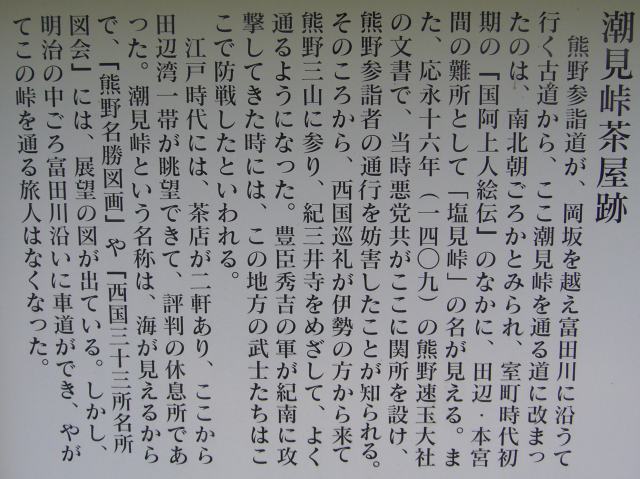 潮見峠茶屋跡
熊野参詣道が、岡坂を越え富田川に沿うて
行く古道から、ここ潮見峠を通る道に改まっ
たのは、南北朝ごろかとみられ、室町時代初
期の『国阿上人絵伝』のなかに、田辺・本宮
間の難所として「塩見峠」の名が見える。ま
た、応永十六年（一四〇九）の熊野速玉大社
の文書で、当時悪党共がここに関所を設け、
熊野参詣者の通行を妨害したことが知られる。
そのころから、西国巡礼が伊勢の方から来て
熊野三山に参り、紀三井寺をめざして、よく
通るようになった。豊臣秀吉の軍が紀南に攻
撃してきた時には、この地方の武士たちはこ
こで防戦したといわれる。
江戸時代には、茶店が二軒あり、ここから
田辺湾一帯が眺望できて、評判の休息所であ
った。潮見峠という名称は、海が見えるから
で、『熊野名勝図画』や『西国三十三所名所
図会』には、展望の図が出ている。しかし、
明治の中ごろ富田川沿いに車道ができ、やが
てこの峠を通る旅人はなくなった。